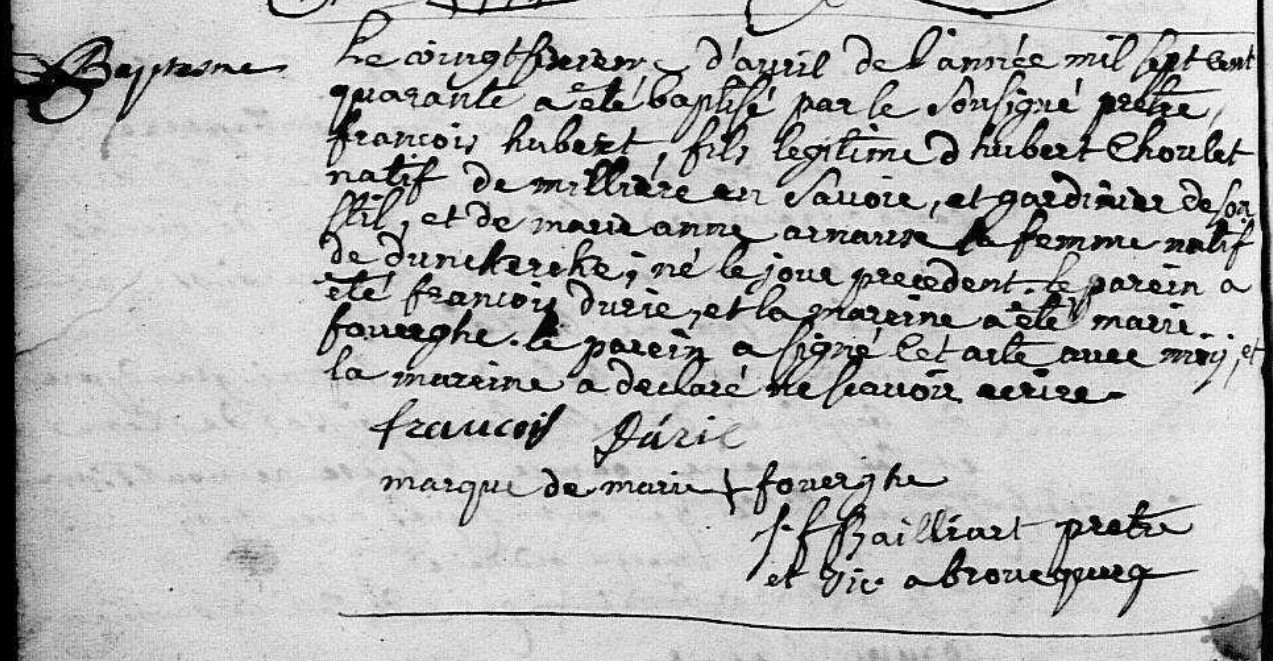 Baptesme
Le vingt d'avril de l'année mil sept cent
quarante a été baptisé par le sousigné pretre,
francois hubert, fils legitime d'hubert Choulet
natif de milliére en Savoie, et gardinier de son
stil, et de marie anne femme natif
de dunckercke, né le jour precedent. le parein a
été francois durie, et la mareine a été marie
fouverghe. le parein a signé cet acte avec moy, et
la mareine a declaré ne scavoir ecrire.
francois Durie
marque de marie + fouverghe
j. f Bailliart pretre
et vic. a broucqourg